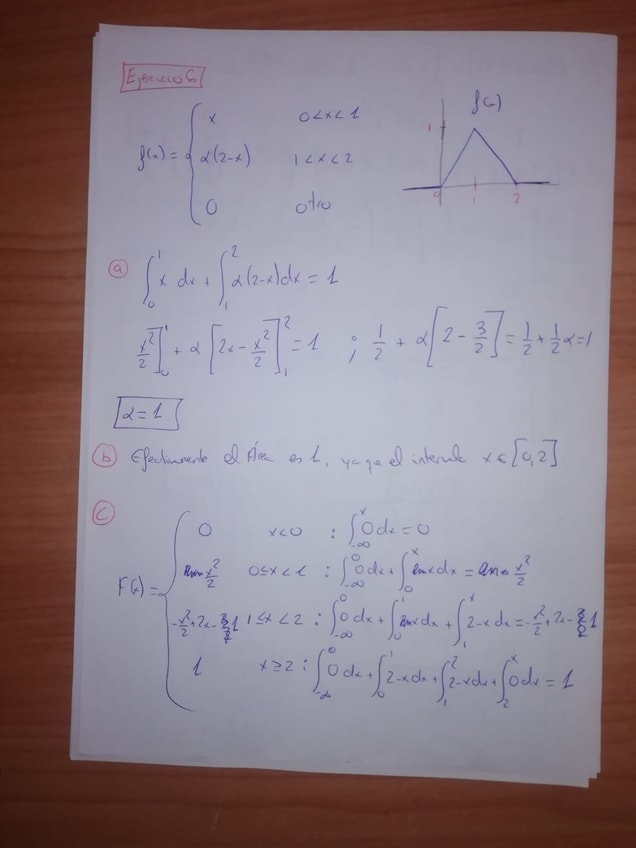 Ejercicio 6
f(x) = { x 0<x<1
α(2-x) 1<x<2
0 otro
f(x)
1
0 1 2
a ∫₀¹ x dx + ∫₁² α(2-x)dx = 1
x²/2]₀¹ + α[2x - x²/2]₁² = 1 ; 1/2 + α[2 - 3/2] = 1/2 + 1/2 α = 1
α = 1
b Efectivamente el Área es 1, ya qe el intervalo x ∈ [0,2]
c
F(x) = { 0 x<0 : ∫₋∞ˣ 0 dx = 0
x²/2 0≤x<1 : ∫₋∞⁰ 0 dx + ∫₀ˣ x dx = x²/2
-x²/2 + 2x - 1 1≤x<2 : ∫₋∞⁰ 0 dx + ∫₀¹ x dx + ∫₁ˣ 2-x dx = -x²/2 + 2x - 1
1 x≥2 : ∫₋∞⁰ 0 dx + ∫₀¹ 2-x dx + ∫₁² 2-x dx + ∫₂ˣ 0 dx = 1